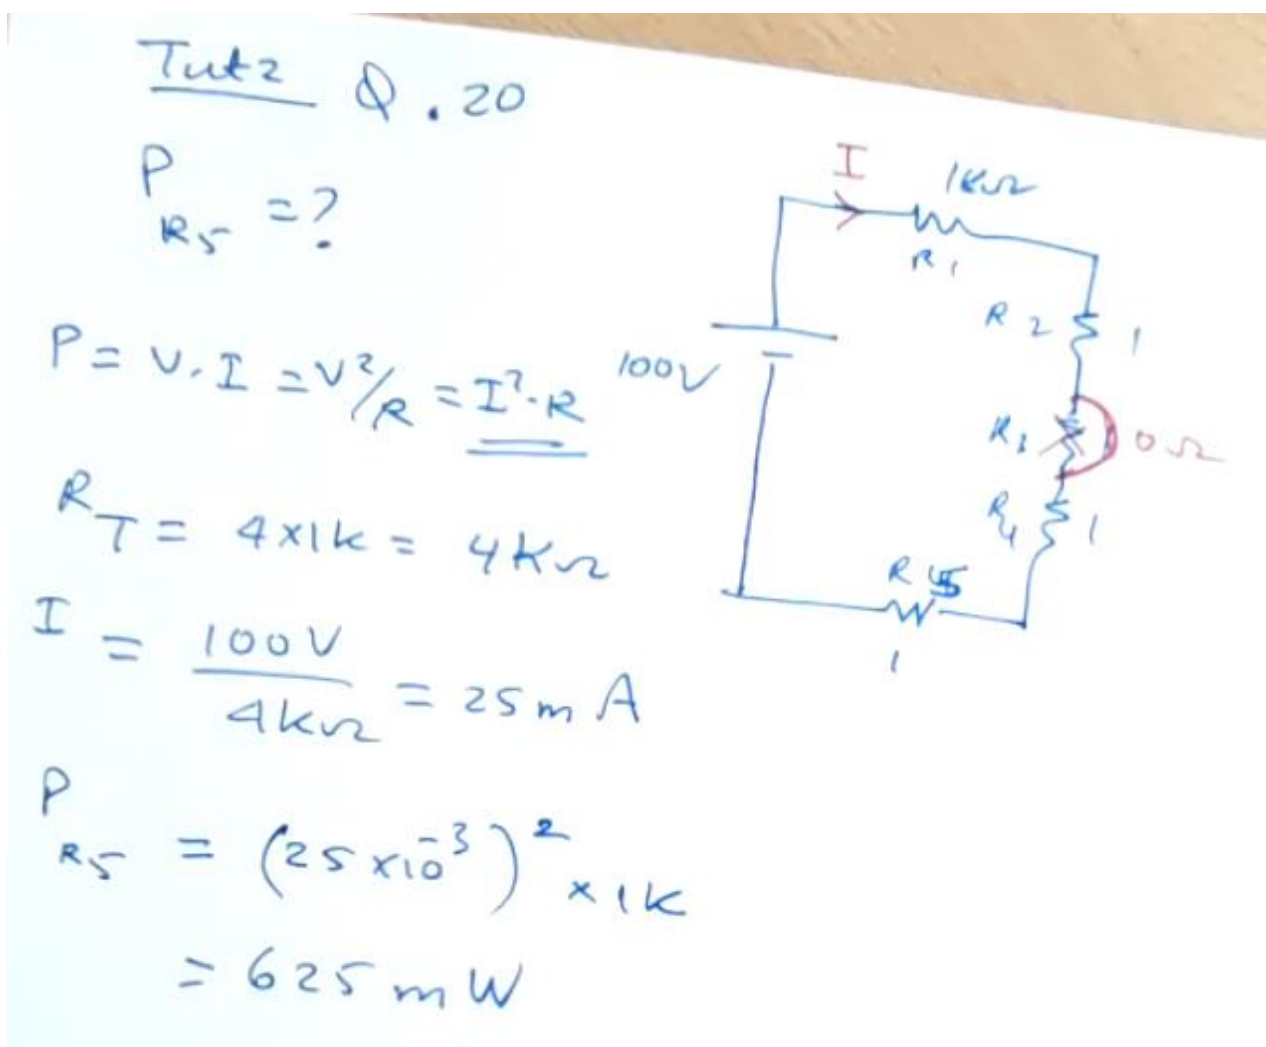 Tut2 Q.20
P R5 = ?
P = V.I = V²/R = I².R
R T = 4x1k = 4KΩ
I = 100V / 4kΩ = 25mA
P R5 = (25x10⁻³)² x 1K
= 625mW
I
1KΩ
R1
R2 1
100V
R3 0Ω
R4 1
R5
1